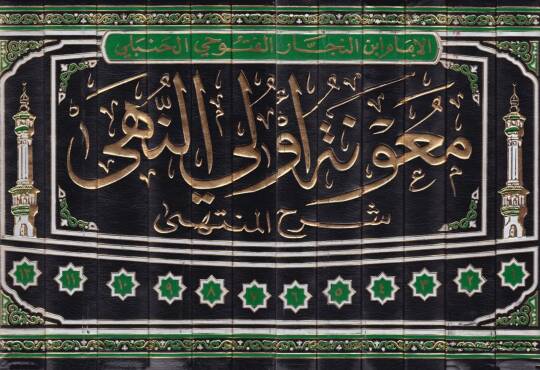 الإمام ابن النجار الفتوحي الحنبلي
معونة أولي النهى
شرح المنتهى
١ ٢ ٣ ٤ ٥ ٦ ٧ ٨ ٩ ١٠ ١١ ١٢